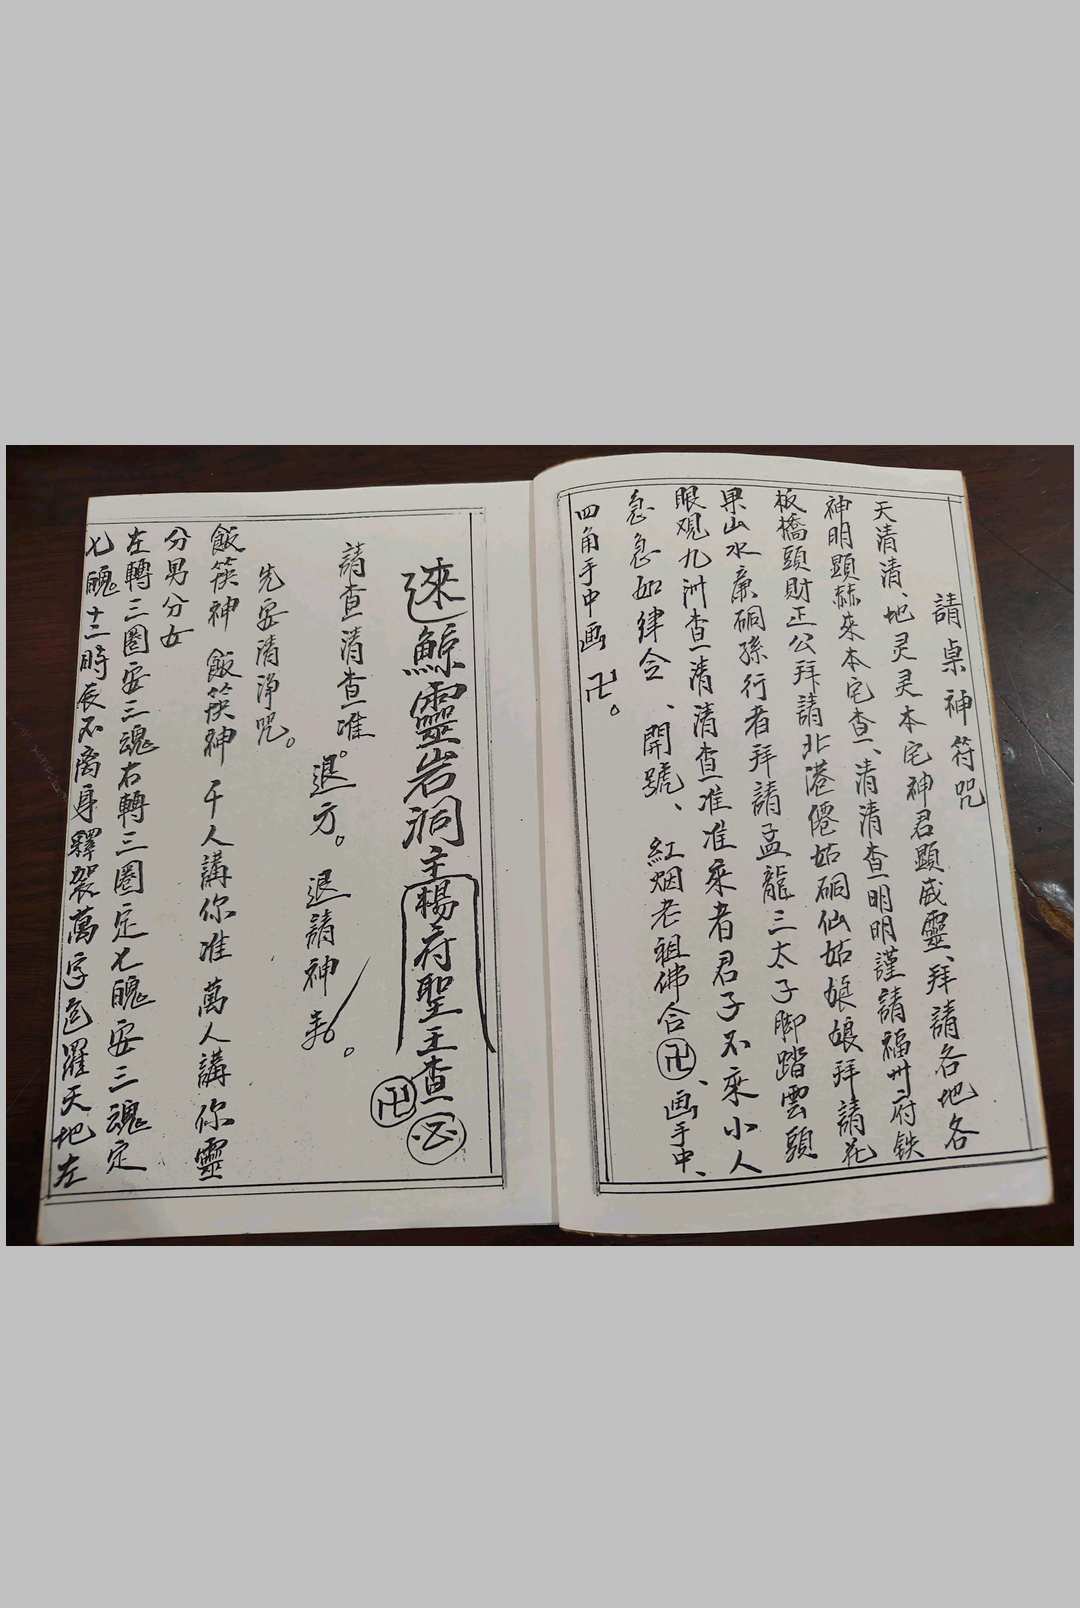 請桌神符咒
天清清、地灵灵本宅神君顯威靈、拜請各地各
神明顯赫來本宅查一、清清查一明明謹請福州府铁
板橋頭財正公拜請北港僊姑硐仙姑娘娘拜請花
果山水廉硐孫行者拜請孟龍三太子脚踏雲頭
眼观九洲查一清清查一准准来者君子不来小人
急急如律令、開號、紅烟老祖佛合卍、画手中、
四角手中画卍。
逨鯨靈岩洞主楊府聖王查一
卍
請查一清查一准。退方。退請神
先安清淨咒。
飯筷神 飯筷神 千人講你准萬人講你靈
分男分女
左轉三圈安三魂右轉三圈定七魄安三魂定
七魄十二時辰不离身釋袈萬字包羅天地左